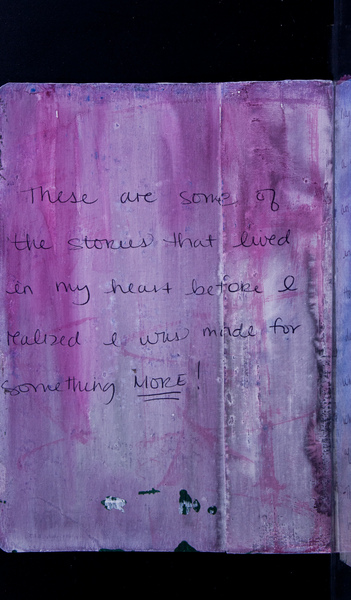 These are some of
the stories that lived
in my heart before I
realized I was made for
something MORE!